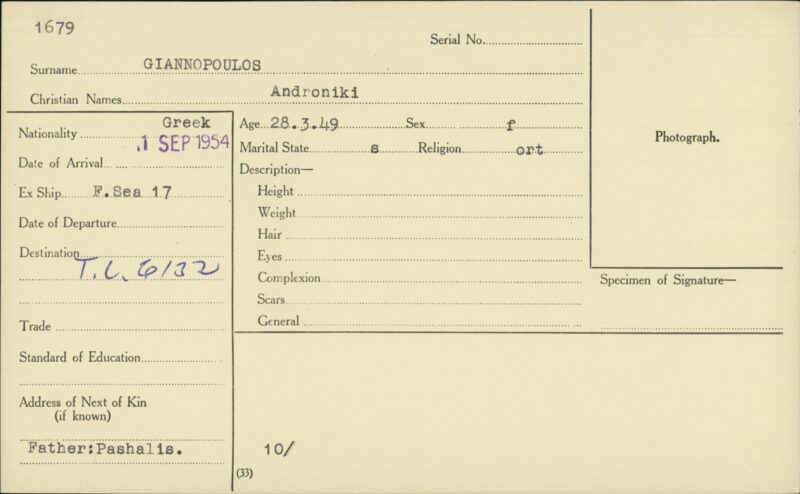 1679
Serial No.
Surname GIANNOPOULOS
Christian Names Androniki
Photograph.
Specimen of Signature—
Nationality Greek
1 SEP 1954
Date of Arrival
Ex Ship F.Sea 17
Date of Departure
Destination
T.L. 6132
Trade
Standard of Education
Address of Next of Kin
(if known)
Father:Pashalis.
Age 28.3.49 Sex f
Marital State s Religion ort
Description—
Height
Weight
Hair
Eyes
Complexion
Scars
General
10/
(33)